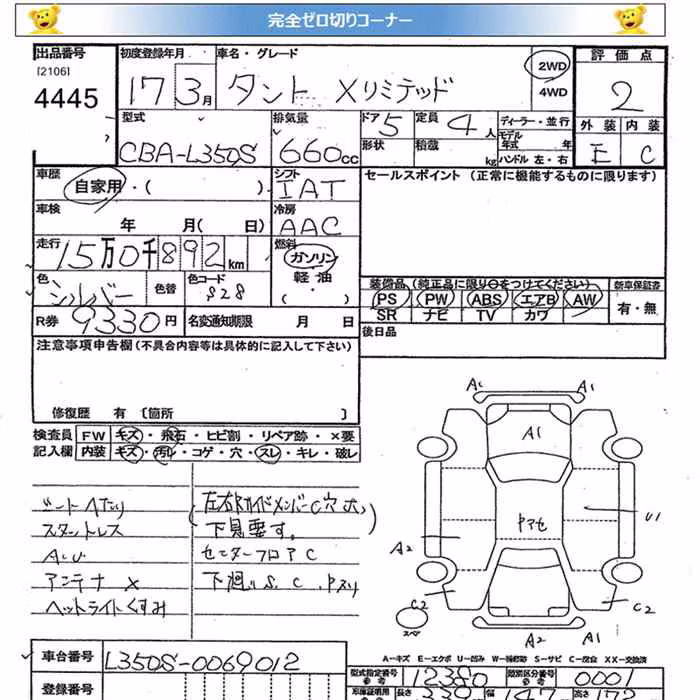 完全ゼロ切りコーナー
出品番号
[2106]
4445
初度登録年月
17 3月
車名・グレード
タント Xリミテッド
2WD
4WD
評価点
2
外装 内装
E C
型式
CBA-L350S
排気量
660cc
ドア 5
定員 4人
ディーラー・並行
モデル年式 年
形状
積載 kg
ハンドル 左・右
車歴
自家用・( )
シフト
IAT
セールスポイント (正常に機能するものに限ります)
車検
年 月( 日)
冷房
AAC
走行
15万0千892km
燃料
ガソリン
軽油
( ・ )
色
シルバー
色替
色コード
S28
装備品 (純正品に限り○をつけてください)
新車保証書
PS PW ABS エアB AW
有・無
SR ナビ TV カワ
R券 9330円
名変通知期限 月 日
後日品
注意事項申告欄 (不具合内容等は具体的に記入して下さい)
修復歴 有 [箇所 ]
検査員
記入欄
FW キズ・飛石・ヒビ割・リペア跡・×要
内装 キズ・汚レ・コゲ・穴・スレ・キレ・破レ
シートヘたり
スタットレス
アンテナ X
ヘットライトくすみ
(左右サイドメンバーC穴大)
下見要す。
センターフロアC
下廻りS.C.
A1 A1
A1
A2
U1
C2 C2
スペア
A2 A1
A-キズ E-エクボ U-凹み W-補修跡 S-サビ C-腐食 XX-交換済
車台番号
L350S-0069012
登録番号
型式指定番号
参考
12380
類別区分番号
参考
0001
車庫証明用
長さ
339
幅
147
高さ